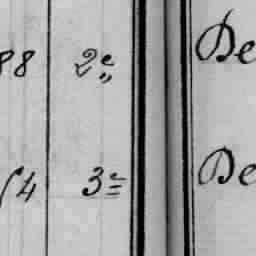 88 2e De
54 3e De